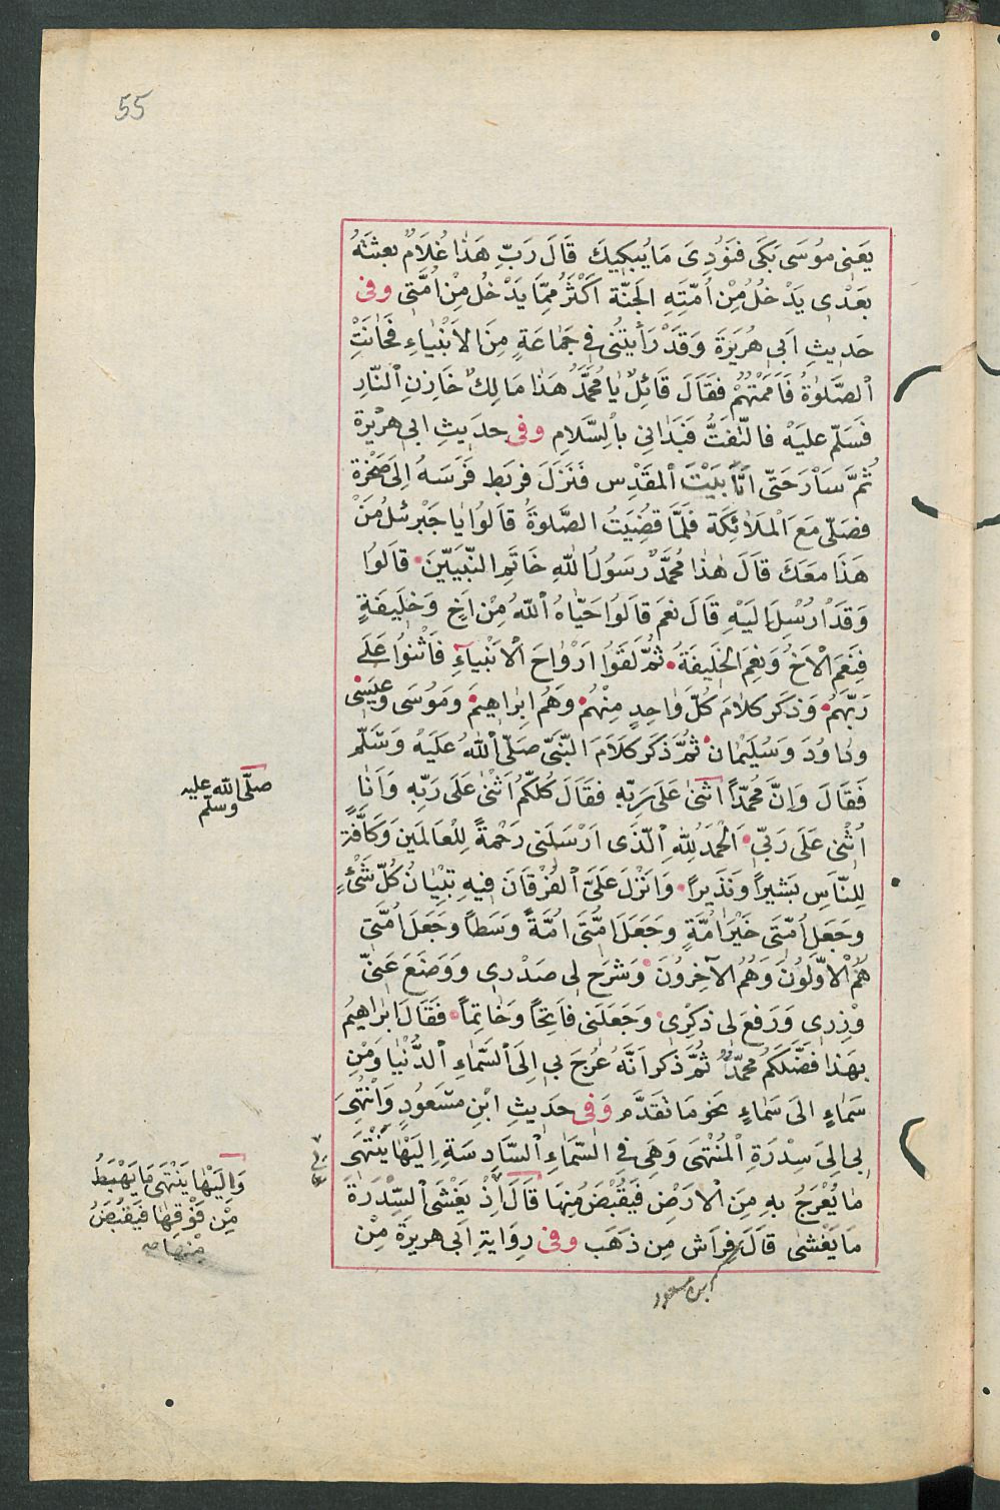 55
يَعْنِى مُوسَى بَكَى فَنُودِىَ مَا يُبْكِيكَ قَالَ رَبِّ هَذَا غُلَامٌ بعثتَهُ
بَعْدِى يَدْخُلُ مِنْ اُمَّتِهِ الجَنَّةَ اَكْثَرُ مِمَّا يَدْخُلُ مِنْ اُمَّتِى وفى
حَدِيثِ اَبِى هُرَيْرَةَ وَقَدْ رَأَيْتُنِى فِى جَمَاعَةٍ مِنَ الاَنْبِيَاءِ فَحَانَتِ
الصَّلَوٰةُ فَاَمَمْتُهُمْ فَقَالَ قَائِلٌ يَا مُحَمَّدُ هَذَا مَالِكٌ خَازِنِ النَّارِ
فَسَلِّمْ عَلَيْهِ فَالْتَفَتُّ فَبَدَانِى بِالسَّلَامِ وفى حَدِيثِ ابى هريْرة
ثُمَّ سَارَ حَتَّى اَتَى بَيْتَ المَقْدِس فَنَزَلَ فربَط فَرَسَهُ اِلَى صَخْرَة
فَصَلَّى مَعَ الْمَلَائِكَة فَلَمَّا قُضِيَتْ الصَّلوةُ قَالُوا يَا جَبْرَئِلُ مَنْ
هَذَا مَعَكَ قَالَ هٰذَا مُحَمَّدٌ رَسُولُ اللهِ خَاتَمِ النَّبِيِّينَ قَالُوا
وَقَدْ اُرْسِلَ اِلَيْهِ قَالَ نَعَمْ قَالُوا حَيَّاهُ اللهُ مِنْ اَخٍ وَخَلِيفَةٍ
فَنِعْمَ الْاَخُ وَنِعْمَ الْخَلِيفَةُ ثُمَّ لَقُوا اَرْوَاحَ الْاَنْبِيَاءِ فَاَثْنَوْا عَلَى
رَبِّهِمْ وَذَكَرَ كَلَامَ كُلِّ وَاحِدٍ مِنْهُمْ وَهُمْ اِبْرَاهِيمَ وَمُوسَى وَعِيسَى
وداودَ وَسُلَيْمَان ثُمَّ ذَكَرَ كَلَامَ النَّبِىِّ صَلَّى اللهُ عَلَيْهِ وَسَلَّمَ
فَقَالَ وَاِنَّ مُحَمَّدًا اَثْنَى عَلَى رَبِّهِ فَقَالَ كُلُّكُمْ اَثْنَى عَلَى رَبِّهِ وَاَنَا
اُثْنِى عَلَى رَبِّى اَلْحَمْدُ لِلهِ الَّذِى اَرْسَلَنِى رَحْمَةً لِلْعَالَمِينَ وَكَافَّةً
لِلنَّاسِ بَشِيرًا وَنَذِيرًا وَاَنْزَلَ عَلَىَّ الفُرْقَانَ فِيهِ تِبْيَانُ كُلِّ شَىْءٍ
وَجَعَلَ اُمَّتِى خَيْرَ اُمَّةٍ وَجَعَلَ اُمَّتِى اُمَّةً وَسَطًا وَجَعَلَ اُمَّتِى
هُمُ الْاَوَّلُونَ وَهُمُ الْآخِرُونَ وَشَرَحَ لِى صَدْرِى وَوَضَعَ عَنِّى
وِزْرِى وَرَفَعَ لِى ذِكْرِى وَجَعَلَنِى فَاتِحًا وَخَاتِمًا فَقَالَ اِبْرَاهِيمُ
بِهَذَا فَضَلَكُمْ مُحَمَّدٌ ثُمَّ ذَكَرَ اَنَّهُ عُرِجَ بِى اِلَى السَّمَاءِ الدُّنْيَا وَمِنْ
سَمَاءٍ اِلَى سَمَاءٍ نحو مَا تَقَدَّم وَفِى حَدِيثِ ابْنِ مَسْعُودٍ وَانْتُهِىَ
بِى اِلَى سِدْرَةِ الْمُنْتَهَى وَهِىَ فِى السَّمَاءِ السَّادِسَةِ اِلَيْهَا يَنْتَهِى
مَا يُعْرَجُ بِهِ مِنَ الْاَرْضِ فَيُقْبَضُ مِنهَا قَالَ اِذْ يَغْشَى السِّدْرَةَ
مَا يَغْشَى قَالَ فِرَاش مِن ذَهَب وفى رِوَايَةِ اَبِى هريرَة مِنْ
صلَّى الله عليه
وسلّم
وَاِلَيْهَا يَنْتَهِى مَا يَهْبِطُ
مِنْ فَوْقِهَا فَيُقْبَضُ
مِنْهَا صح
ابن مسعود